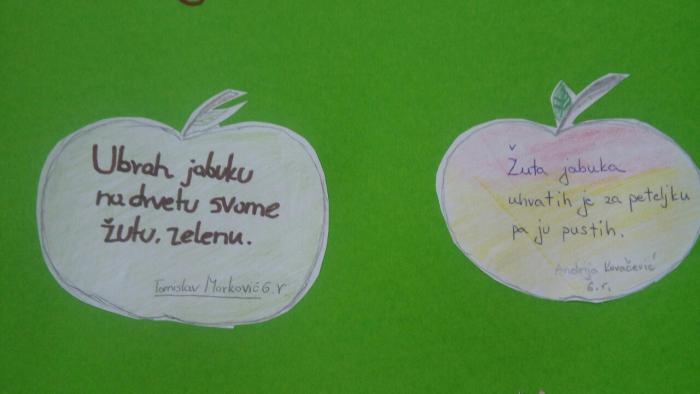 Ubrah jabuku
na drvetu svome
žutu. zelenu.
Tomislav Marković 6. r
Žuta jabuka
uhvatih je za peteljku
pa ju pustih.
Andrija Kovačević
6. r.